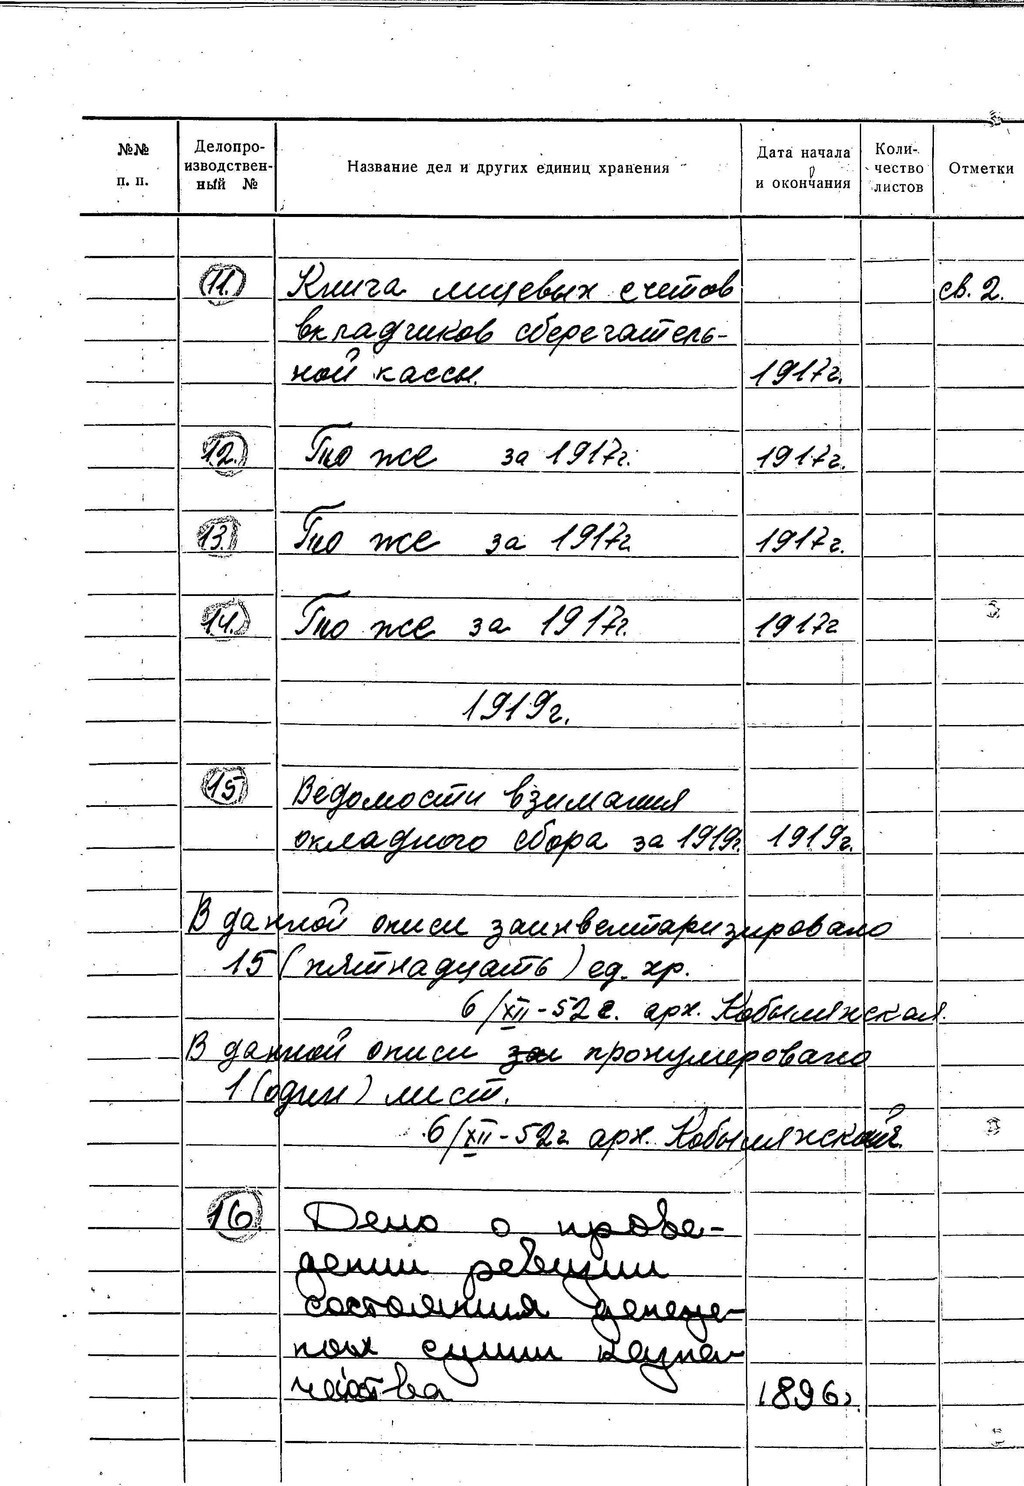 №№ п. п. Делопро-изводствен-ный № Название дел и других единиц хранения Дата начала и окончания Коли-чество листов Отметки
11. Книга лицевых счетов св. 2.
вкладчиков сберегатель-
ной кассы. 1917г.
12. То же за 1917г. 1917г.
13. То же за 1917г. 1917г.
14. То же за 1917г. 1917г
1919г.
15 Ведомости взимания
окладного сбора за 1919г. 1919г.
В данной описи заинвентаризировано
15 (пятнадцать) ед. хр.
6/XII-52г. арх. Кобылянская.
В данной описи пронумеровано
1 (один) лист.
6/XII-52г. арх. Кобылянской
16. Дело о прове-
дении ревизии
состояния денеж-
ных сумм казна-
чейства 1896г.